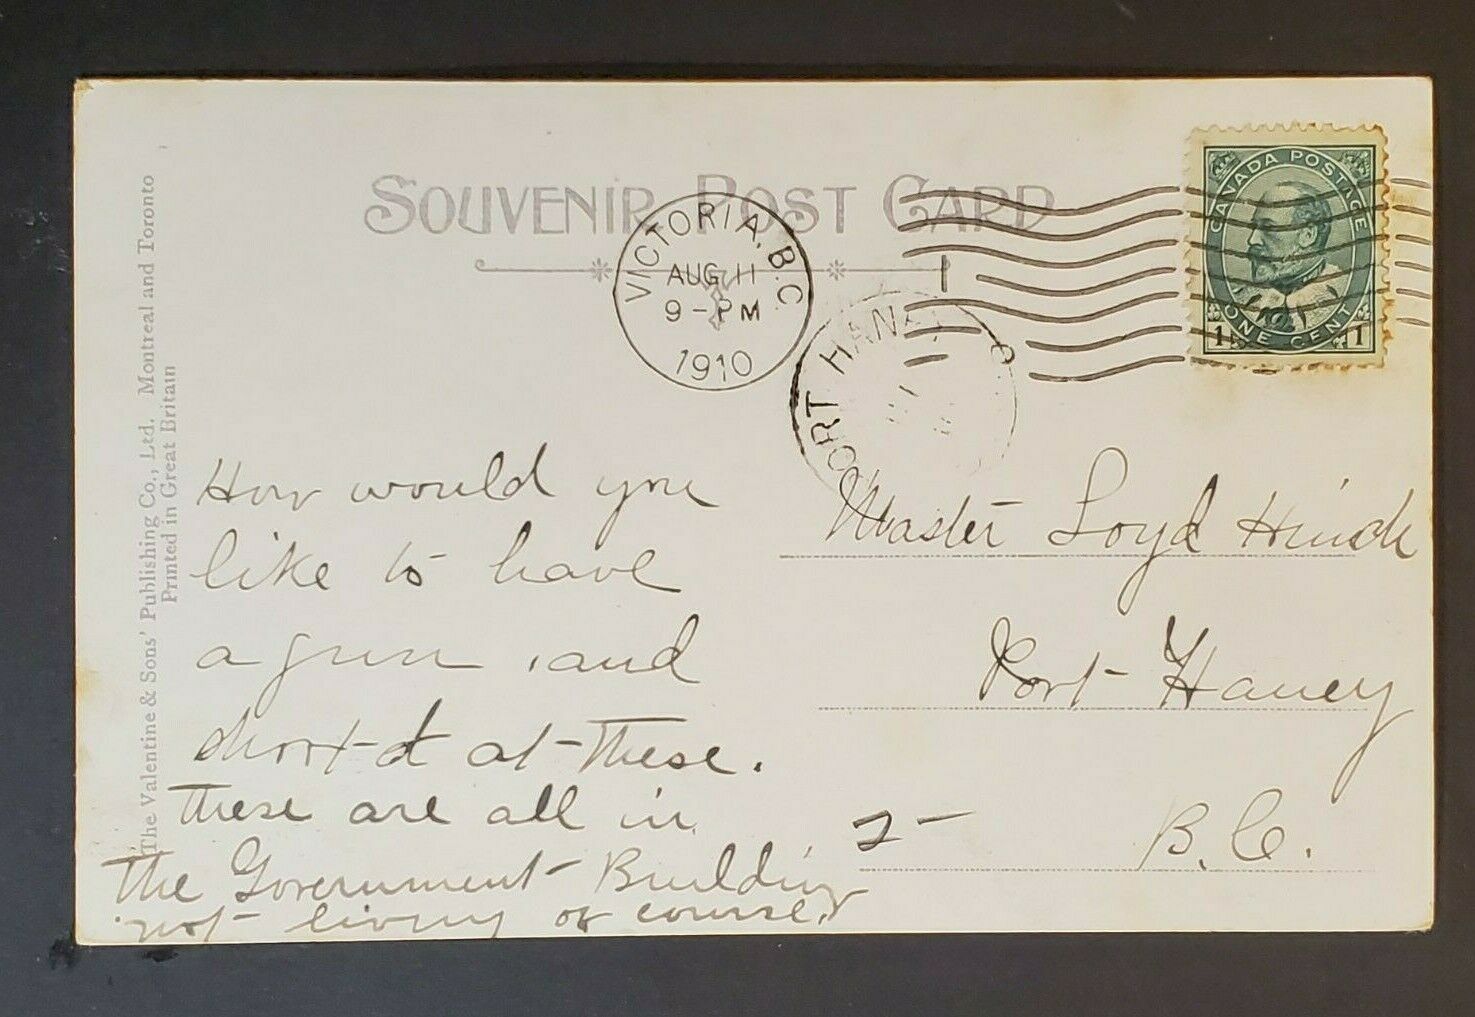 SOUVENIR POST CARD
VICTORIA, B.C.
AUG 11
9-PM
1910
CANADA POSTAGE
1 ONE CENT 1
PORT HANEY
The Valentine & Sons' Publishing Co., Ltd. Montreal and Toronto
Printed in Great Britain
How would you
like to have
a gun and
shoot at these.
These are all in
the Government Building
not living of course.
Master Loyd Hinch
Port Haney
B.C.
2-